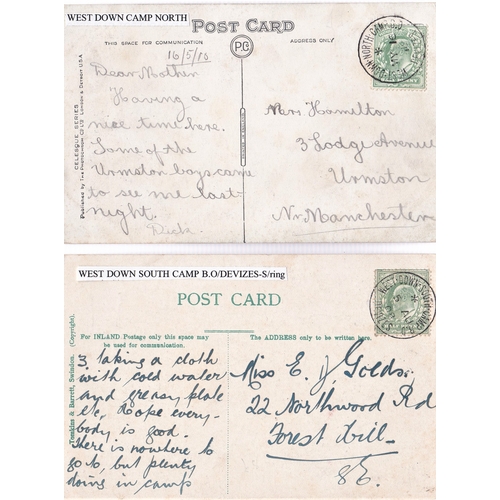 WEST DOWN CAMP NORTH
POST CARD
THIS SPACE FOR COMMUNICATION
ADDRESS ONLY
PC
16/5/10
Dear Mother
Having a
nice time here.
Some of the
Urmston boys came
to see me last
night.
Dick
Mrs Hamilton
3 Lodge Avenue
Urmston
Nr. Manchester
CELESQUE SERIES
Published by The Photochrom Co. Ltd London & Detroit U.S.A
WEST DOWN SOUTH CAMP B.O/DEVIZES-S/ring
POST CARD
For INLAND Postage only this space may
be used for communication.
The ADDRESS only to be written here.
Tomkins & Barrett, Swindon. (Copyright).
3 taking a cloth
with cold water
and greasy plate
etc, hope every-
body is good.
There is nowhere to
go to, but plenty
doing in camp
Miss E J
22 Northwood Rd
Forest Hill
SE